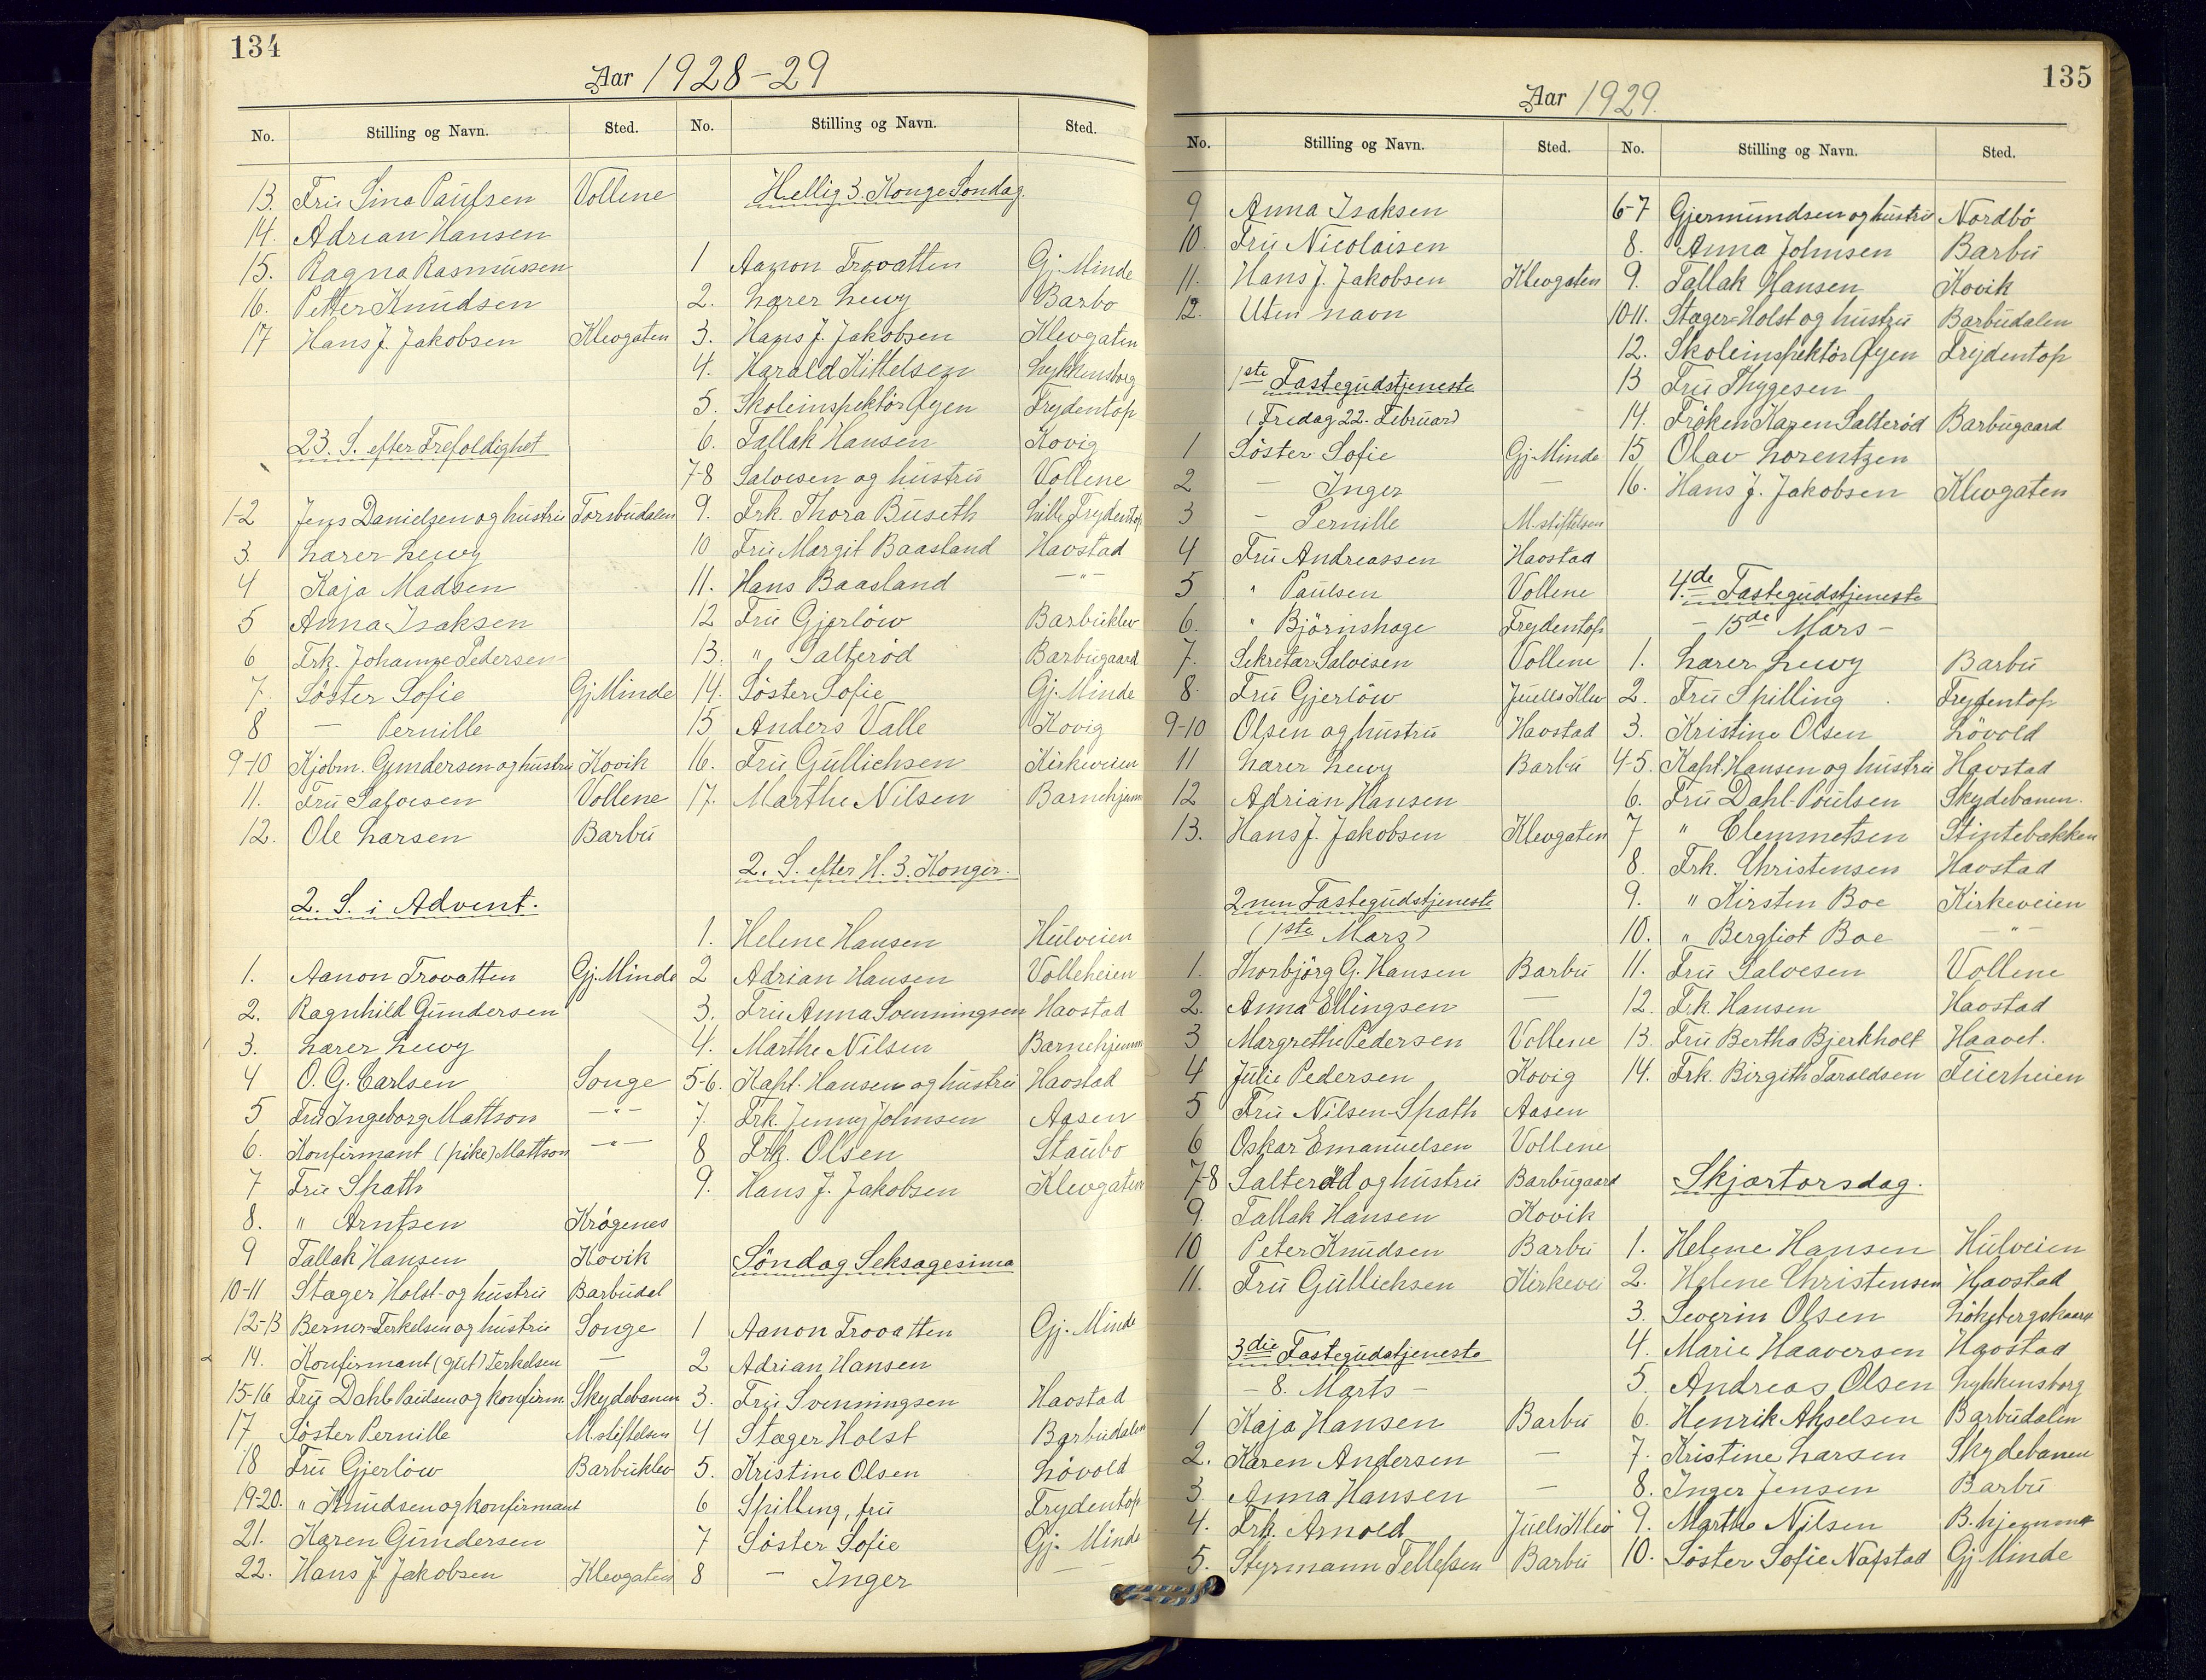 134
Aar 1928-29
No. Stilling og Navn. Sted.
13. Fru Sina Paulsen Vollene
14. Adrian Hansen
15. Ragna Rasmussen
16. Petter Knudsen
17 Hans J. Jakobsen Klevgaten
23. S. efter Trefoldighet
1-2 Jens Danielsen og hustru Torsbudalen
3. Lærer Levy
4 Kaja Madsen
5 Anna Isaksen
6 Frk. Johanne Pedersen
7. Söster Sofie Gj. Minde
8 — Pernille
9-10 Kjöbm. Gundersen og hustru Kovik
11. Fru Salvesen Vollene
12. Ole Larsen Barbu
2. S. i Advent.
1. Aanon Trovatten Gj. Minde
2. Ragnhild Gundersen
3. Lærer Levy
4 O. G. Carlsen Songe
5 Fru Ingeborg Mattson —"—
6. Konfirmant (pike) Mattson —"—
7 Fru Spath
8. " Arntsen Krögenes
9 Tallak Hansen Kovik
10-11 Stæger Holst og hustru Barbudal
12-13 Berner-Terkelsen og hustru Songe
14. Konfirmant (gut) Terkelsen —
15-16 Fru Dahl-Paulsen og konfirm. Skydebanen
17 Söster Pernille M.stiftelsen
18 Fru Gjerlöw Barbuklev
19-20. " Knudsen og konfirmant
21. Karen Gundersen
22. Hans J. Jakobsen Klevgaten
No. Stilling og Navn. Sted.
Hellig 3. Konge Söndag.
1 Aanon Trovatten Gj. Minde
2. Lærer Levy Barbo
3. Hans J. Jakobsen Klevgaten
4. Harald Kittelsen Lykkensborg
5. Skoleinspektör Öyen Frydentop
6. Tallak Hansen Kovig
7-8 Salvesen og hustru Vollene
9. Frk. Thora Buseth Lille Frydentop
10 Fru Margit Baasland Havstad
11. Hans Baasland —"—
12 Fru Gjerlöw Barbuklev
13. " Salteröd Barbugaard
14. Söster Sofie Gj. Minde
15 Anders Valle Kovig
16. Fru Gullichsen Kirkeveien
17. Marthe Nilsen Barnehjem
2. S. efter H. 3. Konger.
1. Helene Hansen Hulveien
2 Adrian Hansen Volleheien
3. Fru Anna Svenningsen Havstad
4. Marthe Nilsen Barnehjemm
5-6. Kapt. Hansen og hustru Havstad
7. Frk. Jenny Johnsen Aasen
8 Frk. Olsen Staubo
9. Hans J. Jakobsen Klevgaten
Söndag Seksagesima
1 Aanon Trovatten Gj. Minde
2 Adrian Hansen
3. Fru Svenningsen Havstad
4 Stæger Holst Barbudalen
5. Kristine Olsen Lövold
6 Spilling, fru Frydentop
7 Söster Sofie Gj. Minde
8 — Inger —
135
Aar 1929.
No. Stilling og Navn. Sted.
9 Anna Isaksen
10. Fru Nicolaisen
11. Hans J. Jakobsen Klevgaten
12. Uten navn
1ste Fastegudstjeneste
(Fredag 22. Februar)
1 Söster Sofie Gj. Minde
2 — Inger —
3 — Pernille M.stiftelsen
4 Fru Andreassen Havstad
5 " Paulsen Vollene
6. " Björnshage Frydentop
7. Sekretær Salvesen Vollene
8. Fru Gjerlöw Juells Klev
9-10 Olsen og hustru Havstad
11 Lærer Levy Barbu
12 Adrian Hansen
13. Hans J. Jakobsen Klevgaten
2nen Fastegudstjeneste
(1ste Mars)
1. Thorbjörg G. Hansen Barbu
2. Anna Ellingsen —
3 Margrethe Pedersen Vollene
4 Julie Pedersen Kovig
5 Fru Nilsen-Spath Aasen
6 Oskar Emanuelsen Vollene
7-8 Salteröd og hustru Barbugaard
9. Tallak Hansen Kovik
10 Peter Knudsen Barbu
11. Fru Gullichsen Kirkevei
3die Fastegudstjeneste
— 8. Marts —
1 Kaja Hansen Barbu
2. Karen Andersen —
3. Anna Hansen —
4. Frk. Arnold Juells Klev
5. Styrmann Tellefsen Barbu
No. Stilling og Navn. Sted.
6-7 Gjermundsen og hustru Nordbö
8. Anna Johnsen Barbu
9. Tallak Hansen Kovik
10-11. Stæger-Holst og hustru Barbudalen
12. Skoleinspektör Öyen Frydentop
13 Fru Thygesen
14. Fröken Karen Salteröd Barbugaard
15 Olav Lorentzen
16. Hans J. Jakobsen Klevgaten
4.de Fastegudstjeneste
— 15de Mars —
1. Lærer Levy Barbu
2. Fru Spilling Frydentop
3. Kristine Olsen Lövold
4-5. Kapt. Hansen og hustru Havstad
6. Fru Dahl-Poulsen Skydebanen.
7 " Clemmetsen Stintebakken
8. Frk. Christensen Havstad
9. " Kirsten Boe Kirkeveien
10. " Bergliot Boe —"—
11. Fru Salvesen Vollene
12. Frk. Hansen Havstad
13. Fru Bertha Bjerkholt Haavet.
14. Frk. Birgith Taraldsen Feierheien
Skjærtorsdag.
1. Helene Hansen Hulveien
2. Helene Christensen Havstad
3. Severin Olsen
4. Marie Haaversen Havstad
5. Andreas Olsen Lykkensborg
6. Henrik Akselsen Barbudalen
7. Kristine Larsen Skydebanen
8. Inger Jensen Barbu
9. Marthe Nilsen B. hjemmet
10. Söster Sofie Nafstad Gj Minde